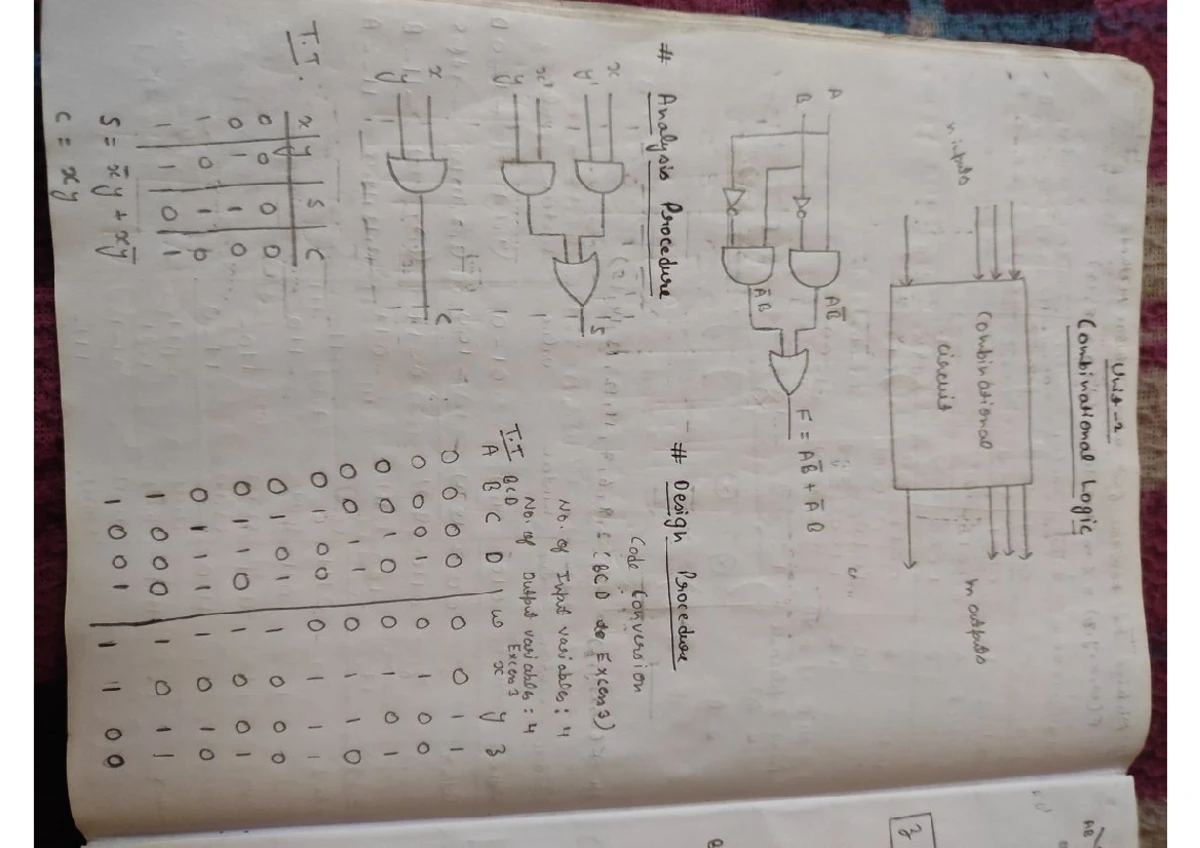 Unit-2
Combinational Logic
n inputs
Combinational
circuit
m outputs
A
B
AB̅
A̅B
F = AB̅ + A̅B
# Analysis Procedure
x
y'
x'
y
S
x
y
C
T.T.
x y S C
0 0 0 0
0 1 1 0
1 0 1 0
1 1 0 1
S = x̅y + xy̅
C = xy
# Design Procedure
Code Conversion
(BCD to Excess 3)
No. of Input variables : 4
No. of Output variables : 4
T.T BCD Excess 3
A B C D w x y z
0 0 0 0 0 0 1 1
0 0 0 1 0 1 0 0
0 0 1 0 0 1 0 1
0 0 1 1 0 1 1 0
0 1 0 0 0 1 1 1
0 1 0 1 1 0 0 0
0 1 1 0 1 0 0 1
0 1 1 1 1 0 1 0
1 0 0 0 1 0 1 1
1 0 0 1 1 1 0 0
AB